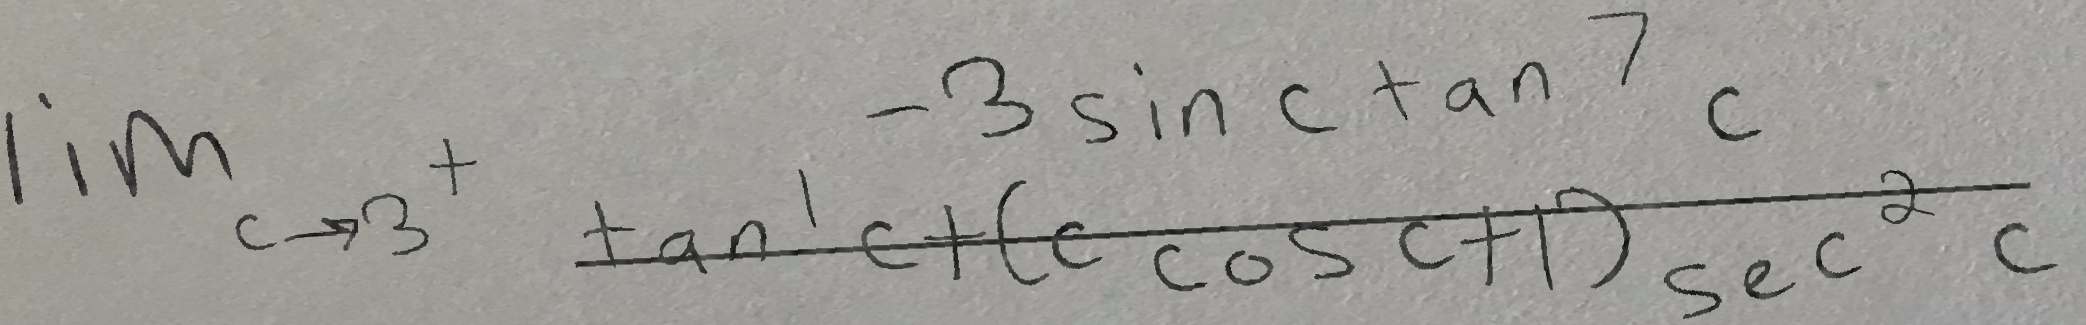 \lim_{c \to 3^+} \frac{-3 \sin c \tan^7 c}{\tan^1 c + (c \cos c + 1) \sec^2 c}